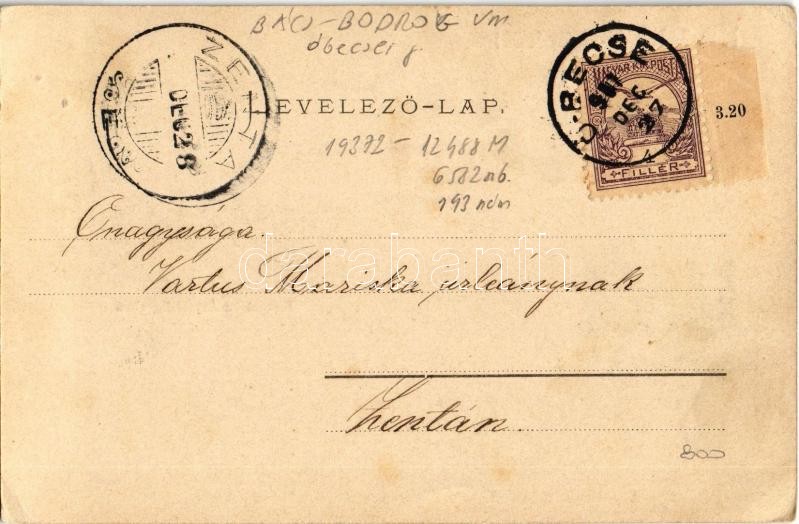 BÁCS-BODROG vm
óbecsei j
ZENTA
DEC 28
LEVELEZŐ-LAP.
Ó-BECSE
DEC 27
MAGYAR KIR. POSTA
4
FILLÉR
3.20
19372 - 12488 M
6582 nb.
193 ném
Őnagysága.
Vartus Mariska úrleánynak
darabanth
Zentán.
800